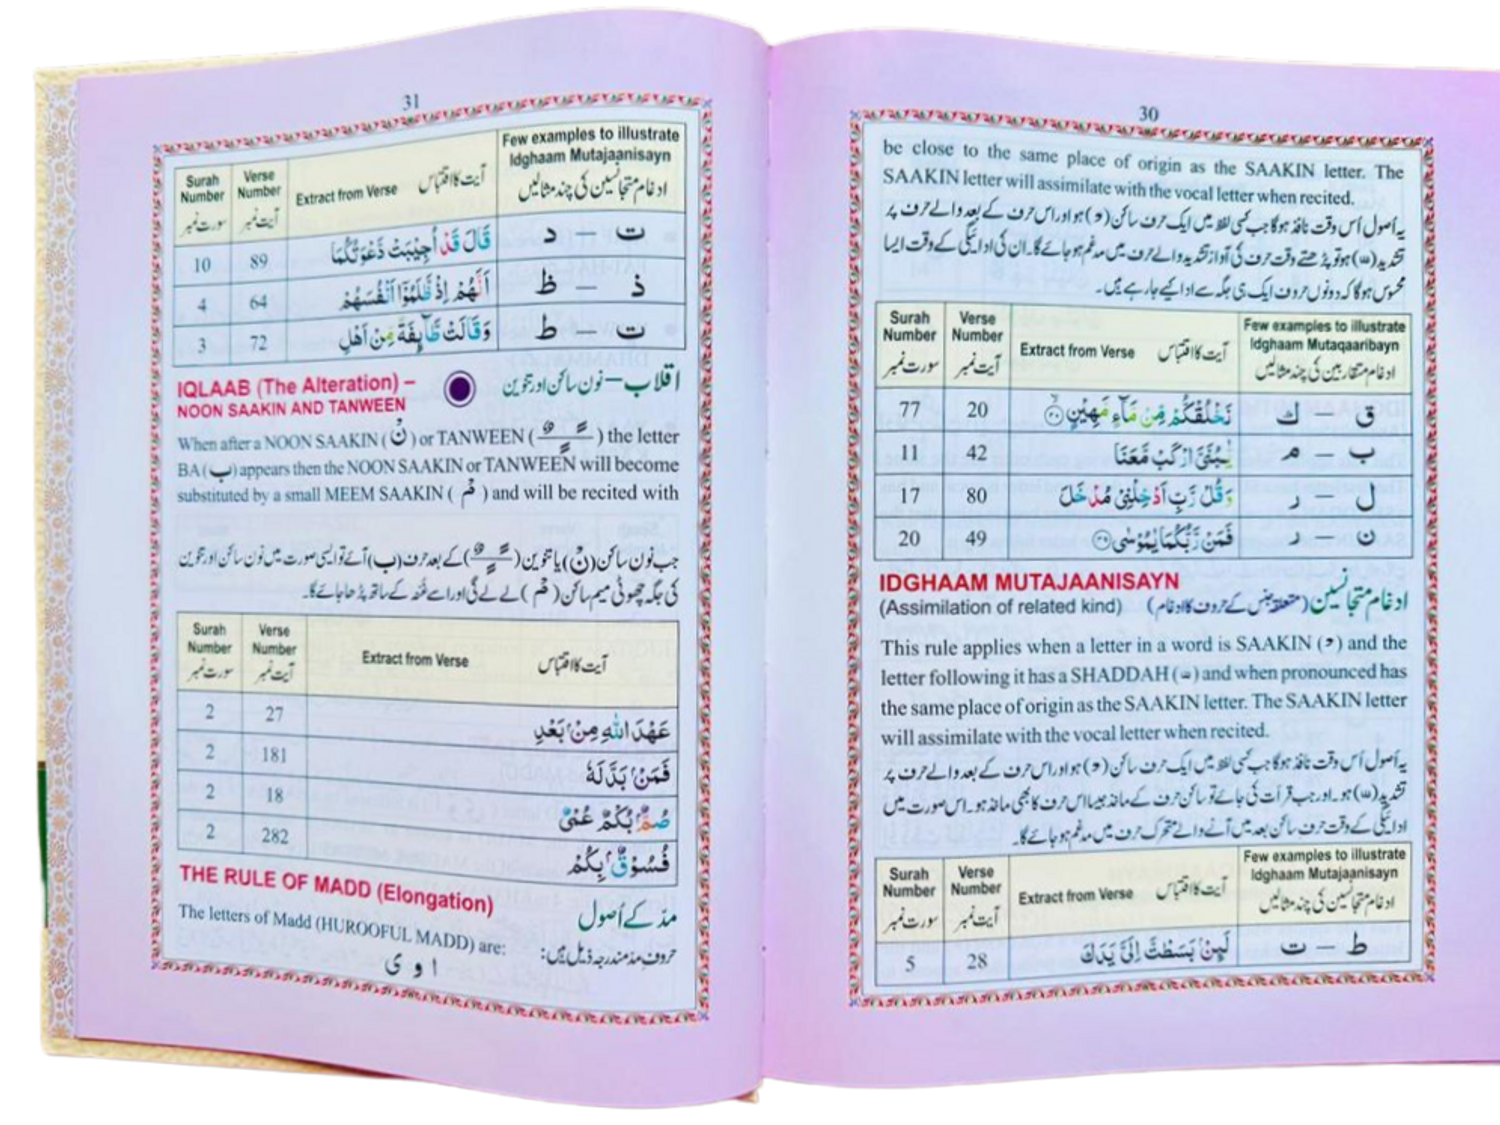 30
be close to the same place of origin as the SAAKIN letter. The
SAAKIN letter will assimilate with the vocal letter when recited.
یہ اُصول اُس وقت نافذ ہوگا جب کسی لفظ میں ایک حرف سائن (ۡ) ہو اور اس حرف کے بعد والے حرف پر
تشدید (ّ) ہو تو پڑھتے وقت حرف کی آواز تشدید والے حرف میں مدغم ہو جائے گا۔ ان کی ادائیگی کے وقت ایسا
محسوس ہوگا کہ دونوں حروف ایک ہی جگہ سے ادا کیے جا رہے ہیں۔
Surah Number سورت نمبر | Verse Number آیت نمبر | Extract from Verse آیت کا اقتباس | Few examples to illustrate Idghaam Mutaqaaribayn ادغام متقاربین کی چند مثالیں
77 20 نَخْلُقكُّمْ مِّنْ مَّآءٍ مَّهِيْنٍ ۟ۙ۲۰ ق – ك
11 42 يّٰبُنَىَّ ارْكَبْ مَّعَنَا ب – م
17 80 وَقُلْ رَّبِّ اَدْخِلْنِىْ مُدْخَلَ ل – ر
20 49 فَمَنْ رَّبُّكُمَا يٰمُوْسٰى ۴۹ ن – ر
IDGHAAM MUTAJAANISAYN
(Assimilation of related kind) ادغام متجانسین (متعلقہ جنس کے حروف کا ادغام)
This rule applies when a letter in a word is SAAKIN (ۡ) and the
letter following it has a SHADDAH (ّ) and when pronounced has
the same place of origin as the SAAKIN letter. The SAAKIN letter
will assimilate with the vocal letter when recited.
یہ اُصول اُس وقت نافذ ہوگا جب کسی لفظ میں ایک حرف سائن (ۡ) ہو اور اس حرف کے بعد والے حرف پر
تشدید (ّ) ہو۔ اور جب قرأت کی جائے تو سائن حرف کے ماخذ جیسا اس حرف کا بھی ماخذ ہو۔ اس صورت میں
ادائیگی کے وقت حرف سائن بعد میں آنے والے متحرک حرف میں مدغم ہو جائے گا۔
Surah Number سورت نمبر | Verse Number آیت نمبر | Extract from Verse آیت کا اقتباس | Few examples to illustrate Idghaam Mutajaanisayn ادغام متجانسین کی چند مثالیں
5 28 لَئِنْۢ بَسَطْتَّ اِلَىَّ يَدَكَ ط – ت
31
Surah Number سورت نمبر | Verse Number آیت نمبر | Extract from Verse آیت کا اقتباس | Few examples to illustrate Idghaam Mutajaanisayn ادغام متجانسین کی چند مثالیں
10 89 قَالَ قَدْ اُجِيْبَتْ دَّعْوَتُكُمَا ت – د
4 64 اَنَّهُمْ اِذْ ظَّلَمُوْٓا اَنْفُسَهُمْ ذ – ظ
3 72 وَقَالَتْ طَّآئِفَةٌ مِّنْ اَهْلِ ت – ط
IQLAAB (The Alteration) – اقلاب – نون سائن اور تنوین
NOON SAAKIN AND TANWEEN
When after a NOON SAAKIN (نْ) or TANWEEN (ـًـٍـٌ) the letter
BA (ب) appears then the NOON SAAKIN or TANWEEN will become
substituted by a small MEEM SAAKIN (مْ) and will be recited with
جب نون سائن (نْ) یا تنوین (ـًـٍـٌ) کے بعد حرف (ب) آئے تو ایسی صورت میں نون سائن اور تنوین
کی جگہ چھوٹی میم سائن (مْ) لے لے گی اور اسے غنہ کے ساتھ پڑھا جائے گا۔
Surah Number سورت نمبر | Verse Number آیت نمبر | Extract from Verse آیت کا اقتباس
2 27 عَهْدَ اللّٰهِ مِنْۢ بَعْدِ
2 181 فَمَنْۢ بَدَّلَهٗ
2 18 صُمٌّۢ بُكْمٌ عُمْىٌ
2 282 فُسُوْقٌۢ بِكُمْ
THE RULE OF MADD (Elongation) مدّ کے اُصول
The letters of Madd (HUROOFUL MADD) are: حروفِ مد مندرجہ ذیل ہیں:
ا و ی